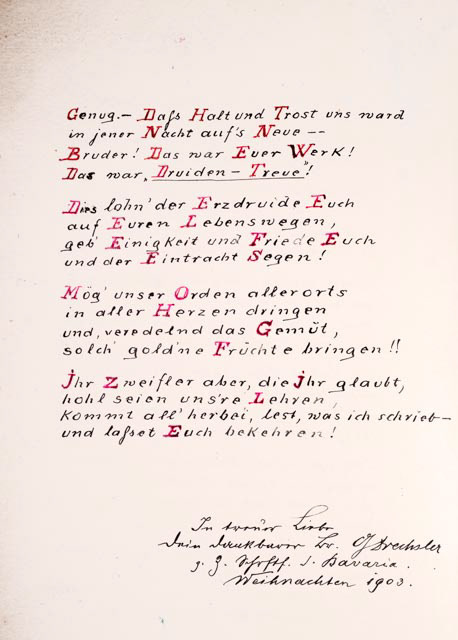 Genug. — Daſs Halt und Trost uns ward
in jener Nacht auf's Neue --
Bruder! Das war Euer Werk!
Das war „Druiden - Treue"!
Dies lohn' der Erzdruide Euch
auf Euren Lebenswegen,
geb' Einigkeit und Friede Euch
und der Eintracht Segen!
Mög' unser Orden allerorts
in aller Herzen dringen
und, veredelnd das Gemüt,
solch' gold'ne Früchte bringen!!
Jhr Zweifler aber, die Jhr glaubt,
hohl seien uns're Lehren,
kommt all' herbei, lest, was ich schrieb —
und laſset Euch bekehren!
In treuer Liebe
Dein dankbarer Br. G Drechsler
z. Z. Schrftf. d. Bavaria.
Weihnachten 1903.